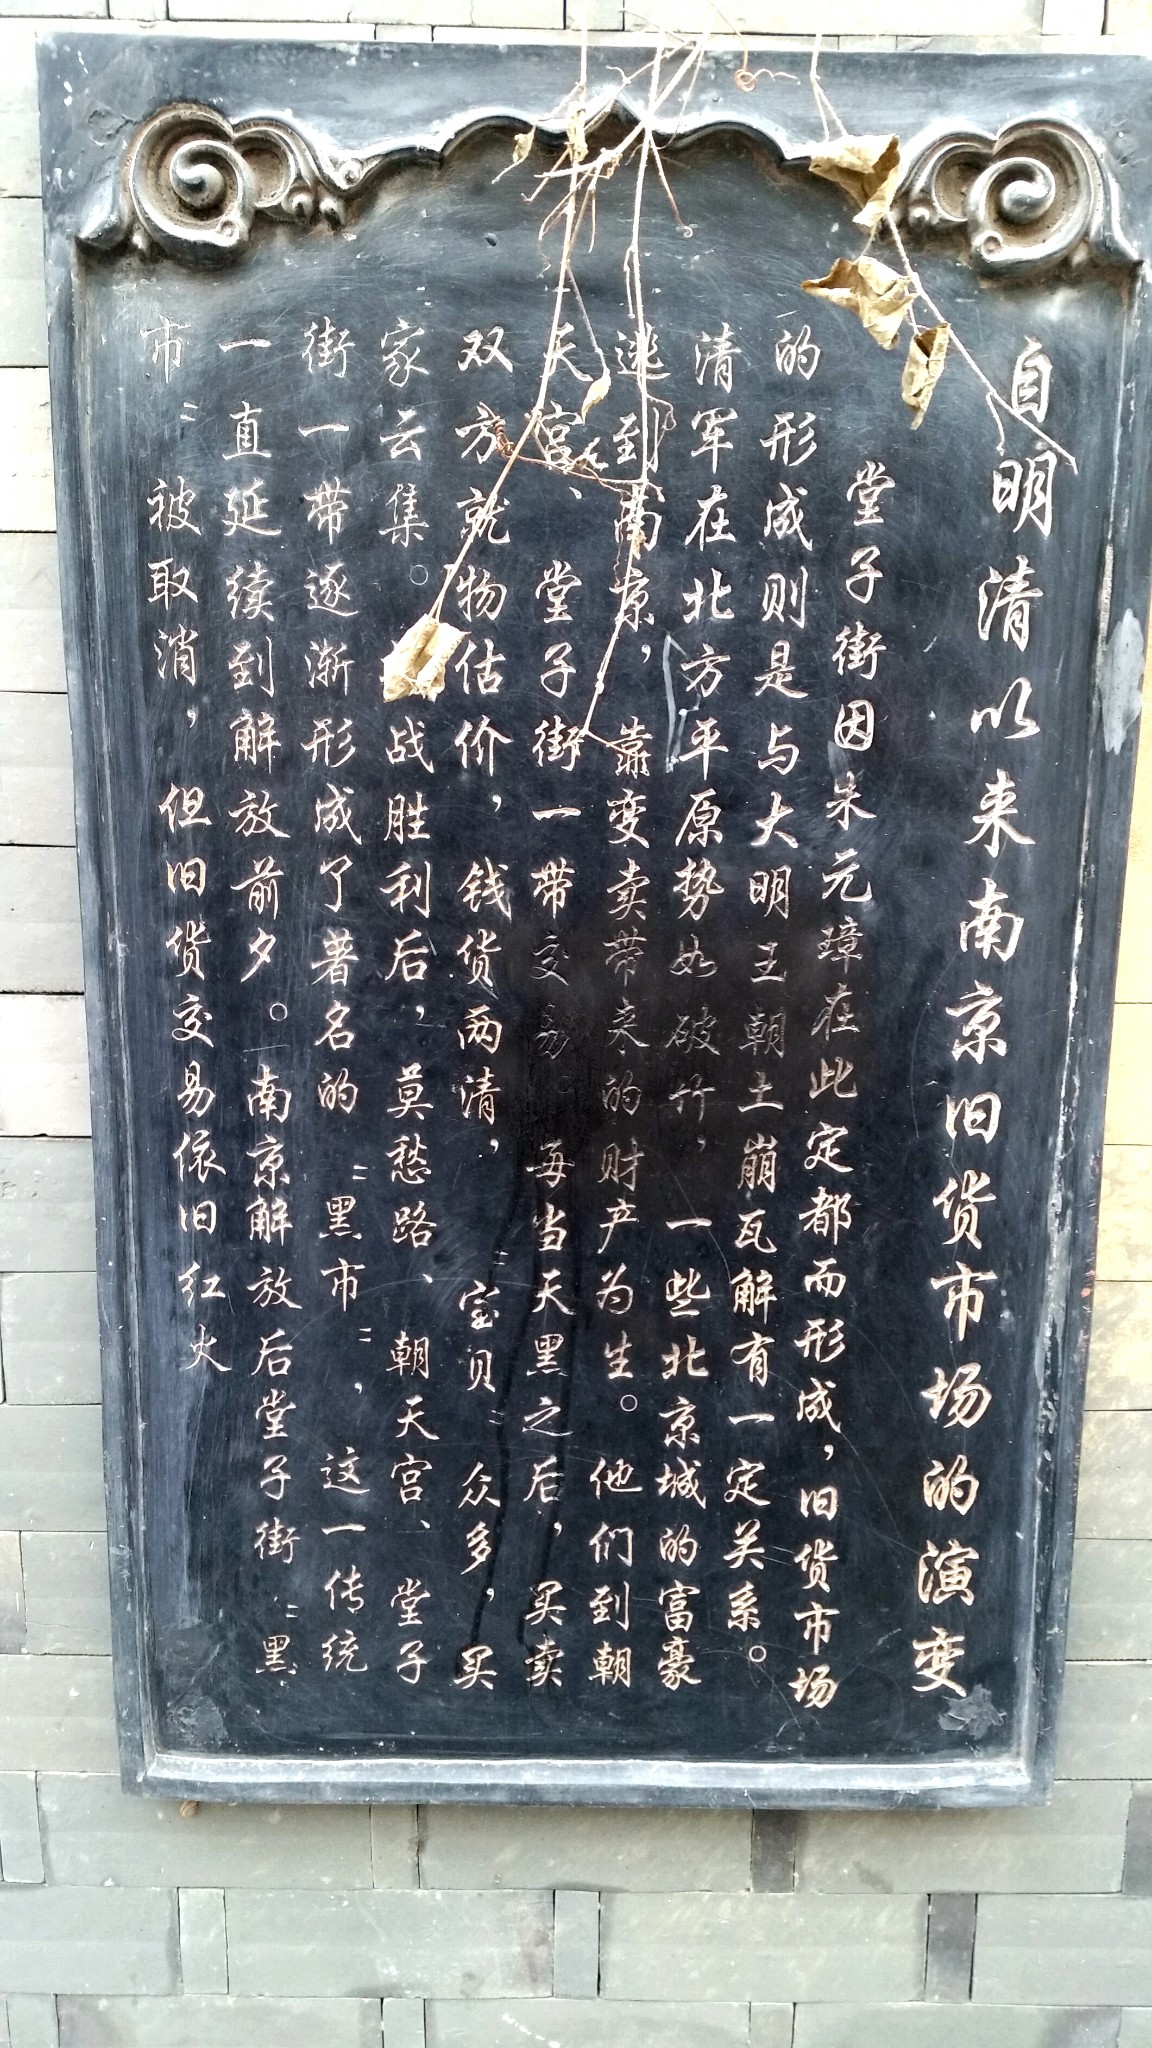 自明清以来南京旧货市场的演变
堂子街因朱元璋在此定都而形成，旧货市场
的形成则是与大明王朝土崩瓦解有一定关系。
清军在北方平原势如破竹，一些北京城的富豪
逃到南京，靠变卖带来的财产为生。他们到朝
天宫、堂子街一带交易。每当天黑之后，买卖
双方就物估价，钱货两清，"宝贝"众多，买
家云集。战胜利后，莫愁路、朝天宫、堂子
街一带逐渐形成了著名的"黑市"，这一传统
一直延续到解放前夕。南京解放后堂子街"黑
市"被取消，但旧货交易依旧红火